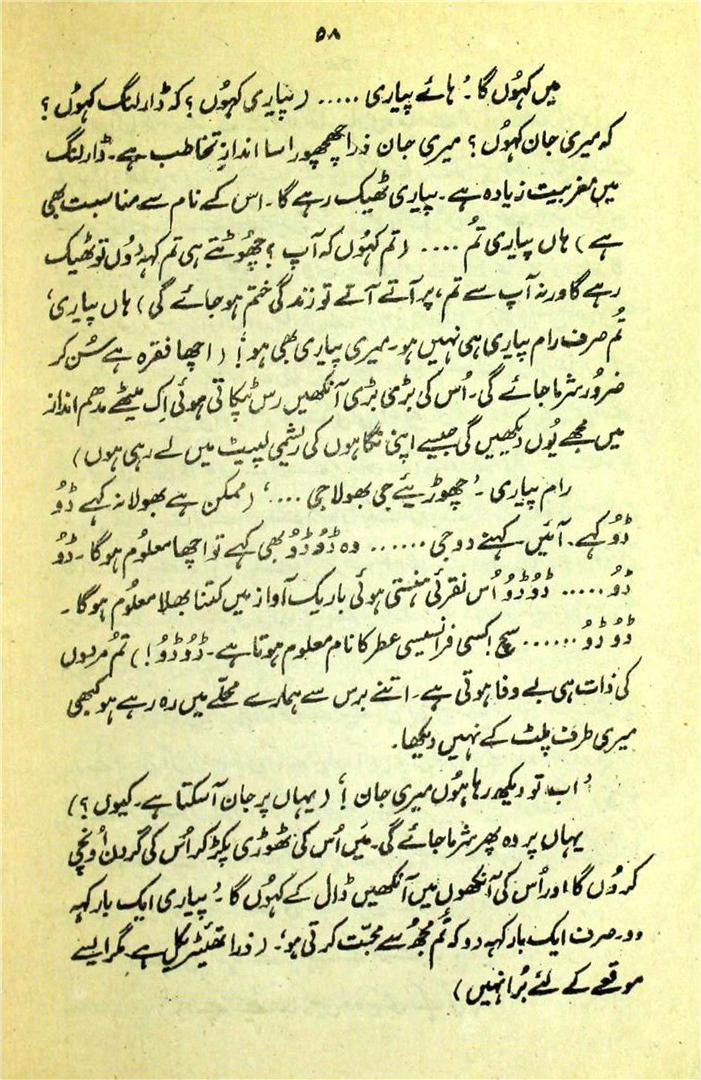 ۵۸
میں کہوں گا۔ 'ہائے پیاری ..... (پیاری کہوں؟ کہ ڈارلنگ کہوں؟
کہ میری جان کہوں؟ میری جان ذرا چھچھورا سا اندازِ تخاطب ہے۔ ڈارلنگ
میں مغربیت زیادہ ہے۔ پیاری ٹھیک رہے گا۔ اس کے نام سے مناسبت بھی
ہے) ہاں پیاری تُم .... (تم کہوں کہ آپ؟ چھُوٹتے ہی تم کہہ دُوں تو ٹھیک
رہے گا ورنہ آپ سے تم، پر آتے آتے تو زندگی ختم ہو جائے گی) ہاں پیاری،
تُم صرف رام پیاری ہی نہیں ہو۔ میری پیاری بھی ہو!' (اچھا فقرہ ہے سُن کر
ضرور شرما جائے گی۔ اُس کی بڑی بڑی آنکھیں رس ٹپکاتی ہوئی اِک میٹھے مدھم انداز
میں مجھے یُوں دیکھیں گی جیسے اپنی نگاہوں کی ریشمی لپیٹ میں لے رہی ہوں)
رام پیاری۔ 'چھوڑیئے جی بھولا جی ....' (ممکن ہے بھولا نہ کہے ڈُو
ڈُو کہے۔ آئیں کہنے دو جی ...... وہ ڈُو ڈُو بھی کہے تو اچھا معلوم ہوگا۔ ڈُو
ڈُو ..... ڈُو ڈُو اُس نقرئی ہنستی ہوئی باریک آواز میں کتنا بھلا معلُوم ہوگا۔
ڈُو ڈُو ...... سچ! کسی فرانسیسی عطر کا نام معلوم ہوتا ہے۔ ڈُو ڈُو!) تُم مردوں
کی ذات ہی بے وفا ہوتی ہے۔ اتنے برس سے ہمارے محلّے میں رہ رہے ہو کبھی
میری طرف پلٹ کے نہیں دیکھا۔
'اب تو دیکھ رہا ہُوں میری جان!' (یہاں پر جان آ سکتا ہے۔ کیوں؟)
یہاں پر وہ پھر شرما جائے گی۔ مَیں اُس کی ٹھوڑی پکڑ کر اُس کی گردن اُونچی
کر دُوں گا اور اُس کی آنکھوں میں آنکھیں ڈال کے کہُوں گا۔ 'پیاری ایک بار کہہ
دو۔ صرف ایک بار کہہ دو کہ تُم مجھُ سے محبّت کرتی ہو'۔ (ذرا تھیئٹریکل ہے مگر ایسے
موقعے کے لئے بُرا نہیں)